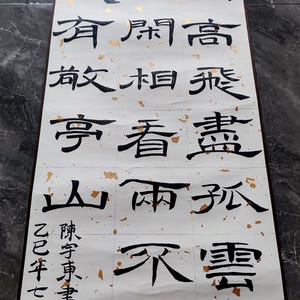 高飛盡孤雲
閑相看兩不
有敬亭山
陳宇東書
乙巳年七